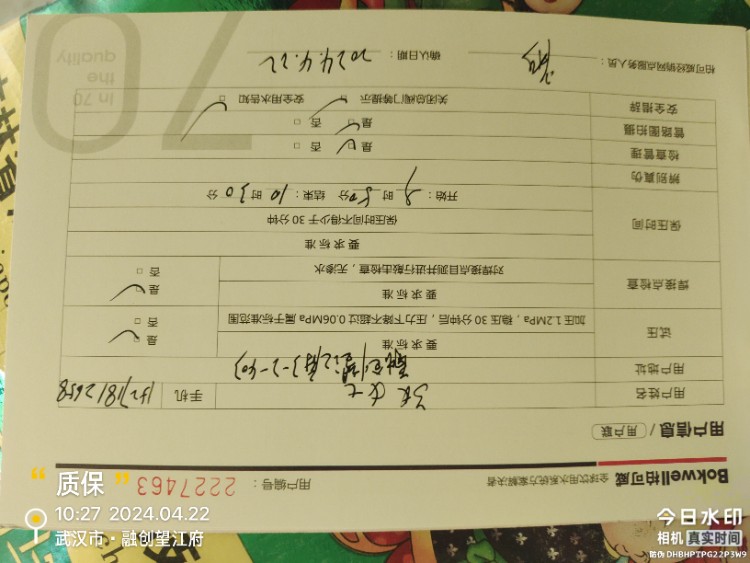 Bokwell柏可威 全球饮用水系统方案解决者 用户编号： 2227463
用户信息 / 用户联
用户姓名 手机
用户地址
试压 要求标准 是
加压1.2MPa，稳压30分钟后，压力下降不超过0.06MPa属于标准范围 否
焊接点检查 要求标准 是
对焊接点目测并进行敲击检查，无渗水 否
保压时间 要求标准
保压时间不得少于30分钟
开始： 9 时 50 分 结束： 10 时 30 分
辨别真伪
检查管理 是 否
管路图拍摄 是 否
安全措辞 关闭总阀门等提示 安全用水告知
柏可威经销网点服务人员： 确认日期： 2024.4.22
in 70
the
quality
70
质保
10:27 2024.04.22
武汉市·融创望江府
今日水印
相机 真实时间
防伪 DHBHPTPG22P3W9